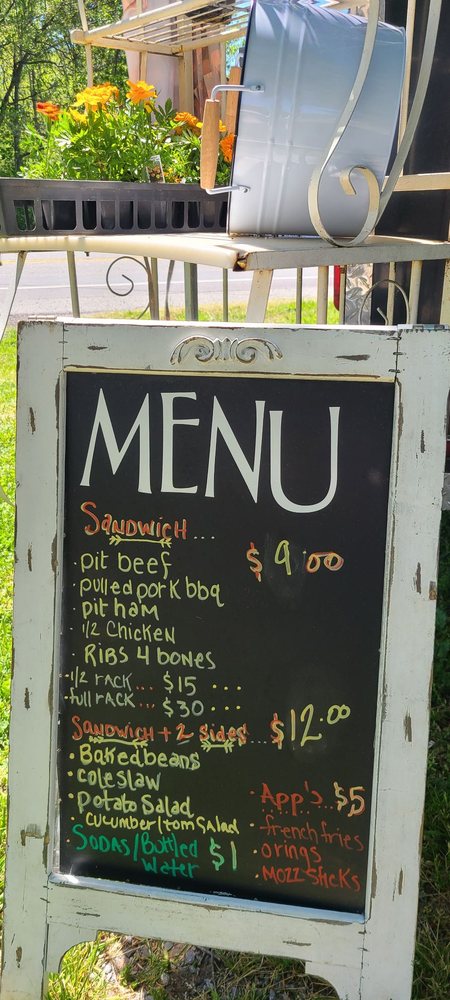 MENU
SANDWICH... $9.00
· pit beef
· pulled pork bbq
· pit ham
· 1/2 CHicKEN
· RiBS 4 bones
· 1/2 RACK... $15 ...
· full RACK... $30 ...
SANDWICH + 2 Sides... $12.00
· Baked beans
· coleslaw
· potato Salad
· cucumber/tom Salad
· SODAS/Bottled Water $1
· App's... $5
· french fries
· o rings
· MOZZ SticKs